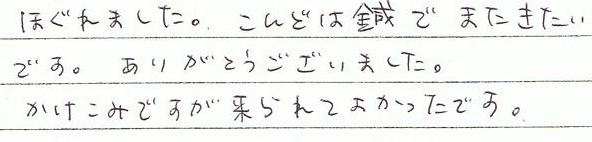 ほぐれました。こんどは鍼でまたきたい
です。ありがとうございました。
かけこみですが来られてよかったです。